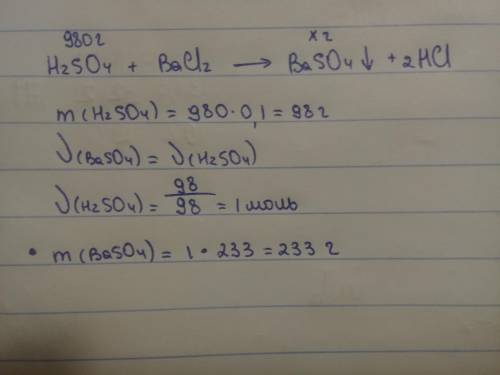 980г xг
H2SO4 + BaCl2 → BaSO4↓ + 2HCl
m(H2SO4) = 980·0,1 = 98г
ν(BaSO4) = ν(H2SO4)
ν(H2SO4) = 98/98 = 1 моль
• m(BaSO4) = 1·233 = 233 г